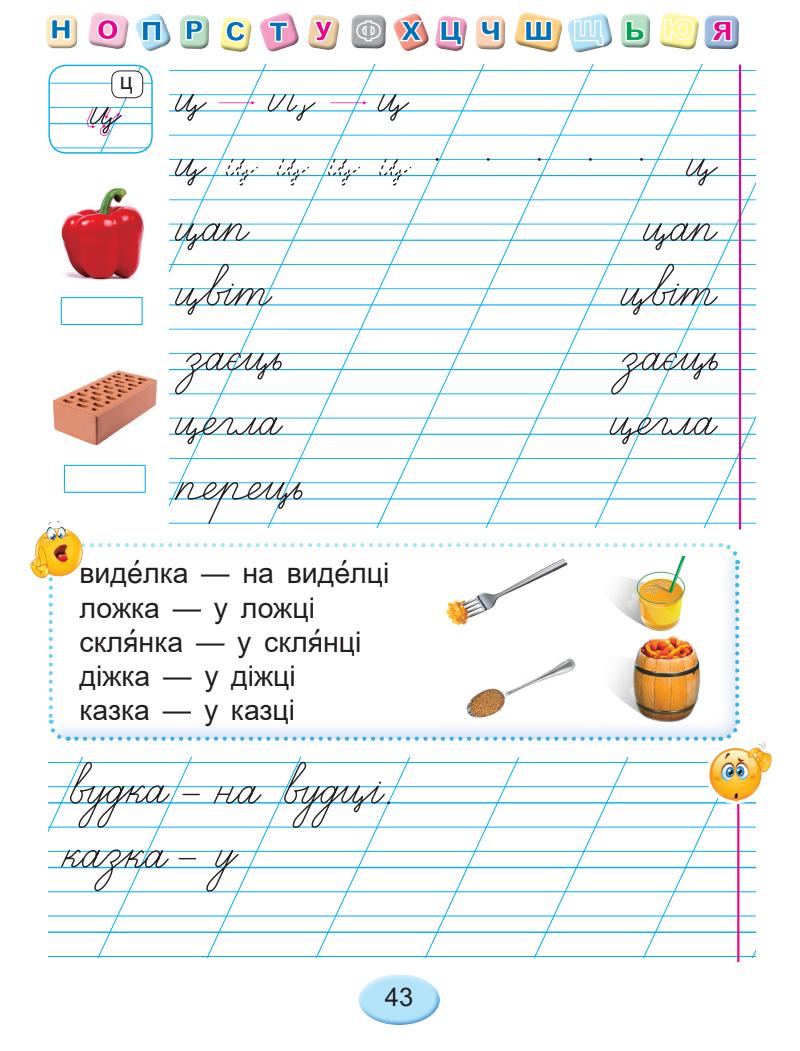 Н О П Р С Т У Ф Х Ц Ч Ш Щ Ь Ю Я
ц
ц
ц ц ц
ц ц ц ц ц ц
цап цап
цвіт цвіт
заєць заєць
цегла цегла
перець
виде́лка — на виде́лці
ложка — у ложці
скля́нка — у скля́нці
діжка — у діжці
казка — у казці
вудка – на вудці.
казка – у
43